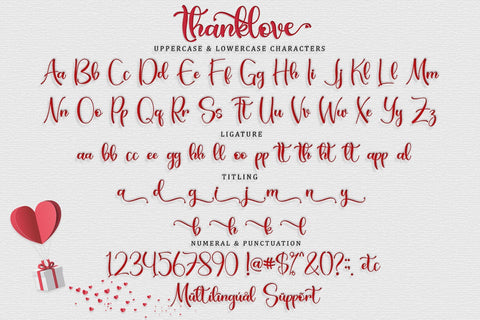 thanklove
UPPERCASE & LOWERCASE CHARACTERS
Aa Bb Cc Dd Ee Ff Gg Hh Ii Jj Kk Ll Mm
Nn Oo Pp Qq Rr Ss Tt Uu Vv Ww Xx Yy Zz
LIGATURE
aa bb cc ee gg hh ll oo pp tt th ht lt app al
TITLING
a d g i j m n y
b h k l
NUMERAL & PUNCTUATION
1234567890 !@#$%^&0?:; etc
Multilingual Support